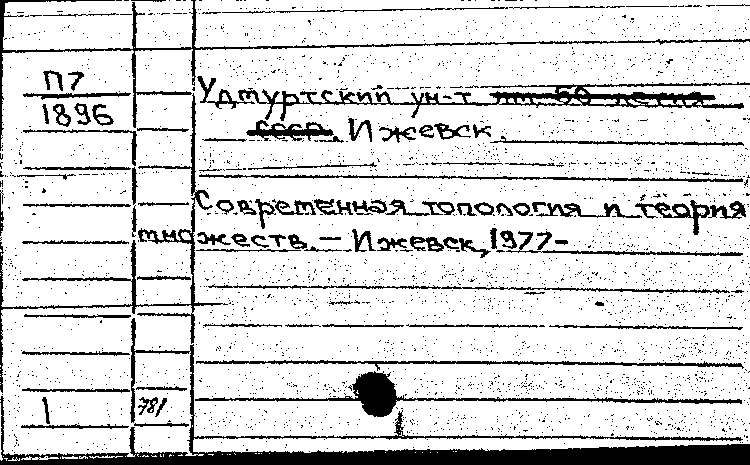 П7
1896
Удмуртский ун-т им. 50-летия
СССР. Ижевск.
Современная топология и теория
множеств. — Ижевск, 1977-
1 781